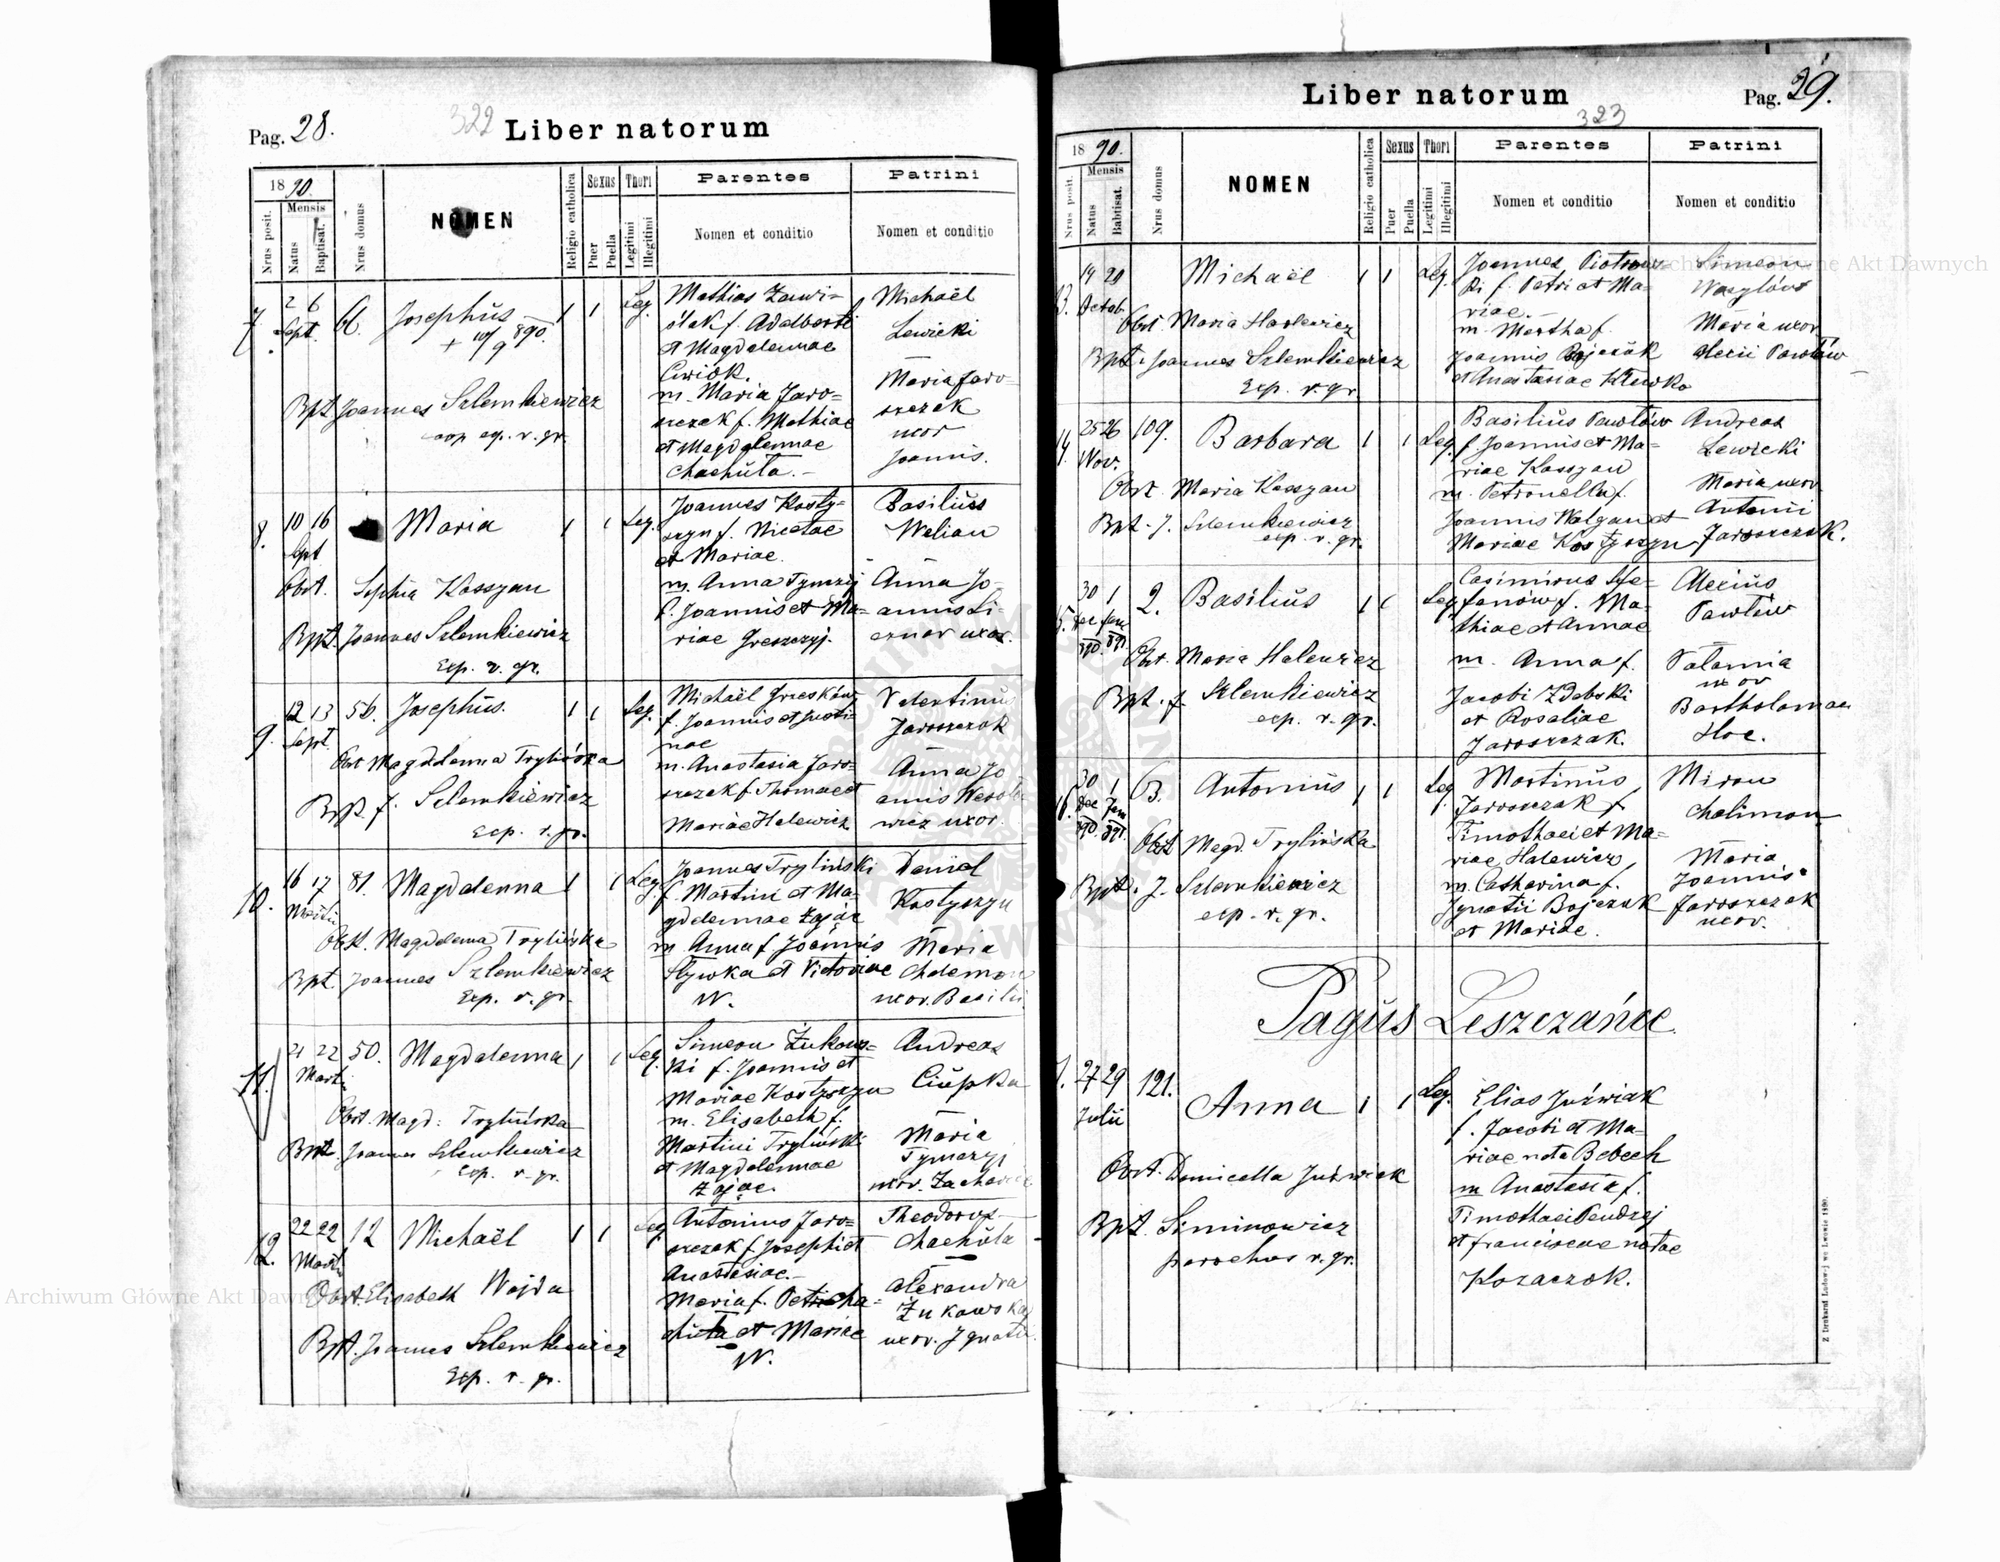 Pag. 28.
322
Liber natorum
18 90.
Nrus posit.
Mensis
Natus
Baptisat.
Nrus domus
NOMEN
Religio catholica
Sexus
Puer
Puella
Thori
Legitimi
Illegitimi
Parentes
Nomen et conditio
Patrini
Nomen et conditio
7.
2 6
Sept.
Josephus
+ 10/9 890.
1 1
Leg.
Bpt. Joannes Szlemkiewicz
exp. r. gr.
Mathias Zawi-
ślak f. Adalberti
et Magdalennae
Cwiok.
m. Maria Jaro-
szczak f. Mathiae
et Magdalennae
Chachuła.-
Michaël
Lewicki
Maria Jaro-
szczak
uxor
Joannis.
8.
10 16
Sept
Maria
1 1
Leg.
Obst. Sophia Kossyan
Bpt. Joannes Szlemkiewicz
Exp. r. gr.
Joannes Kosty-
szyn f. Nicetae
et Mariae.
m. Anna Tymczij
f. Joannis et Ma-
riae Greszczyj.
Basilius
Welian
Anna Jo-
annis Li
cznar uxor.
9.
12 13
Sept.
56.
Josephus.
1 1
Leg.
Obst Magdalenna Trylińska
Bpt. J. Szlemkiewicz
Exp. r. gr.
Michaël Grzesków
f. Joannis et Justi-
nae
m. Anastasia Jaro-
szczak f. Thomae et
Mariae Halewicz
Valentinus
Jaroszczak
Anna Jo
annis
wicz uxor.
10.
16 17
Martii
81.
Magdalenna
1 1
Leg.
Obst. Magdalenna Trylińska
Bpt. Joannes Szlemkiewicz
Exp. r. gr.
Joannes Tryliński
f. Martini et Ma-
gdalennae Zając
m. Anna f. Joannis
Sływka et Victoriae
N.
Daniel
Kostyszyn
Maria
uxor. Basilii
11.
21 22
Martii
50.
Magdalenna
1 1
Leg.
Obst. Magd: Trylińska
Bpt. Joannes Szlemkiewicz
Exp. r. gr.
Simeon Żukows-
ki f. Joannis et
Mariae Kostyszyn
m. Elisabeth f.
Martini Tryliński
et Magdalennae
Zając.
Andreas
Ciupka
Maria
Tymczyj
uxor. Zachariae
12.
22 22
Martii
12
Michaël
1 1
Leg.
Obst. Elisabeth Wojda
Bpt. Joannes Szlemkiewicz
Exp. r. gr.
Antonius Jaro-
szczak f. Josephi et
Anastasiae.-
Maria f. Petri Cha-
chuła et Mariae
N.
Theodorus
Chachuła
Alexandra
Żukowska
uxor. Ignatii
Liber natorum
Pag. 29.
323
18 90.
Nrus posit.
Mensis
Natus
Babtisat.
Nrus domus
NOMEN
Religio catholica
Sexus
Puer
Puella
Thori
Legitimi
Illegitimi
Parentes
Nomen et conditio
Patrini
Nomen et conditio
13.
19 20
Octob.
Michaël
1 1
Leg.
Obst. Maria Halewicz
Bpt. Joannes Szlemkiewicz
Exp. r. gr.
Joannes Piotrows-
ki f. Petri et Ma-
riae.-
m. Martha f.
Joannis Bojczuk
et Anastasiae
Simeon
Wasylów
Maria uxor
Alexii Pawłów
14.
25 26
Nov.
109.
Barbara
1 1
Leg.
Obst. Maria Kossyan
Bpt. J. Szlemkiewicz
exp. r. gr.
Basilius Pawłów
f. Joannis et Ma-
riae Kossyan
m. Petronella f.
Joannis Walgan et
Mariae Kostyszyn
Andreas
Lewicki
Maria uxor
Antonii
Jaroszczak.
15.
30 1
Dec Jan
890. 891.
2.
Basilius
1 1
Leg
Obst. Maria Halewicz
Bpt. J. Szlemkiewicz
exp. r. gr.
Casimirus Ste-
fanów f. Ma-
thiae et Annae
m. Anna f.
Jacobi Zdebski
et Rosaliae
Jaroszczak.
Alexius
Pawłów
Palania
uxor
Bartholomaei
Hoc.
16.
30 1
Dec Jan
890. 891.
13.
Antonius
1 1
Leg.
Obst Magd. Trylińska
Bpt. J. Szlemkiewicz
exp. r. gr.
Martinus
Jaroszczak f.
Timothaei et Ma-
riae Halewicz,
m. Catharina f.
Ignatii Bojczuk
et Mariae.
Miron
Chalimon
Maria
Joannis
Jaroszczak
uxor.
Pagus Leszczańce
1.
27 29
Julii
121.
Anna
1 1
Leg.
Obst. Domicella Juźwiak
Bpt. Siminowicz
parochus r. gr.
Elias Juźwiak
f. Jacobi et Ma-
riae nata Bebech
m Anastasia f.
Timothaei Pendzej
et Franciscae natae
Kozaczok.
Z Drukarni Ludowej we Lwowie 1890.
Archiwum Główne Akt Dawnych
Archiwum Główne Akt Dawnych